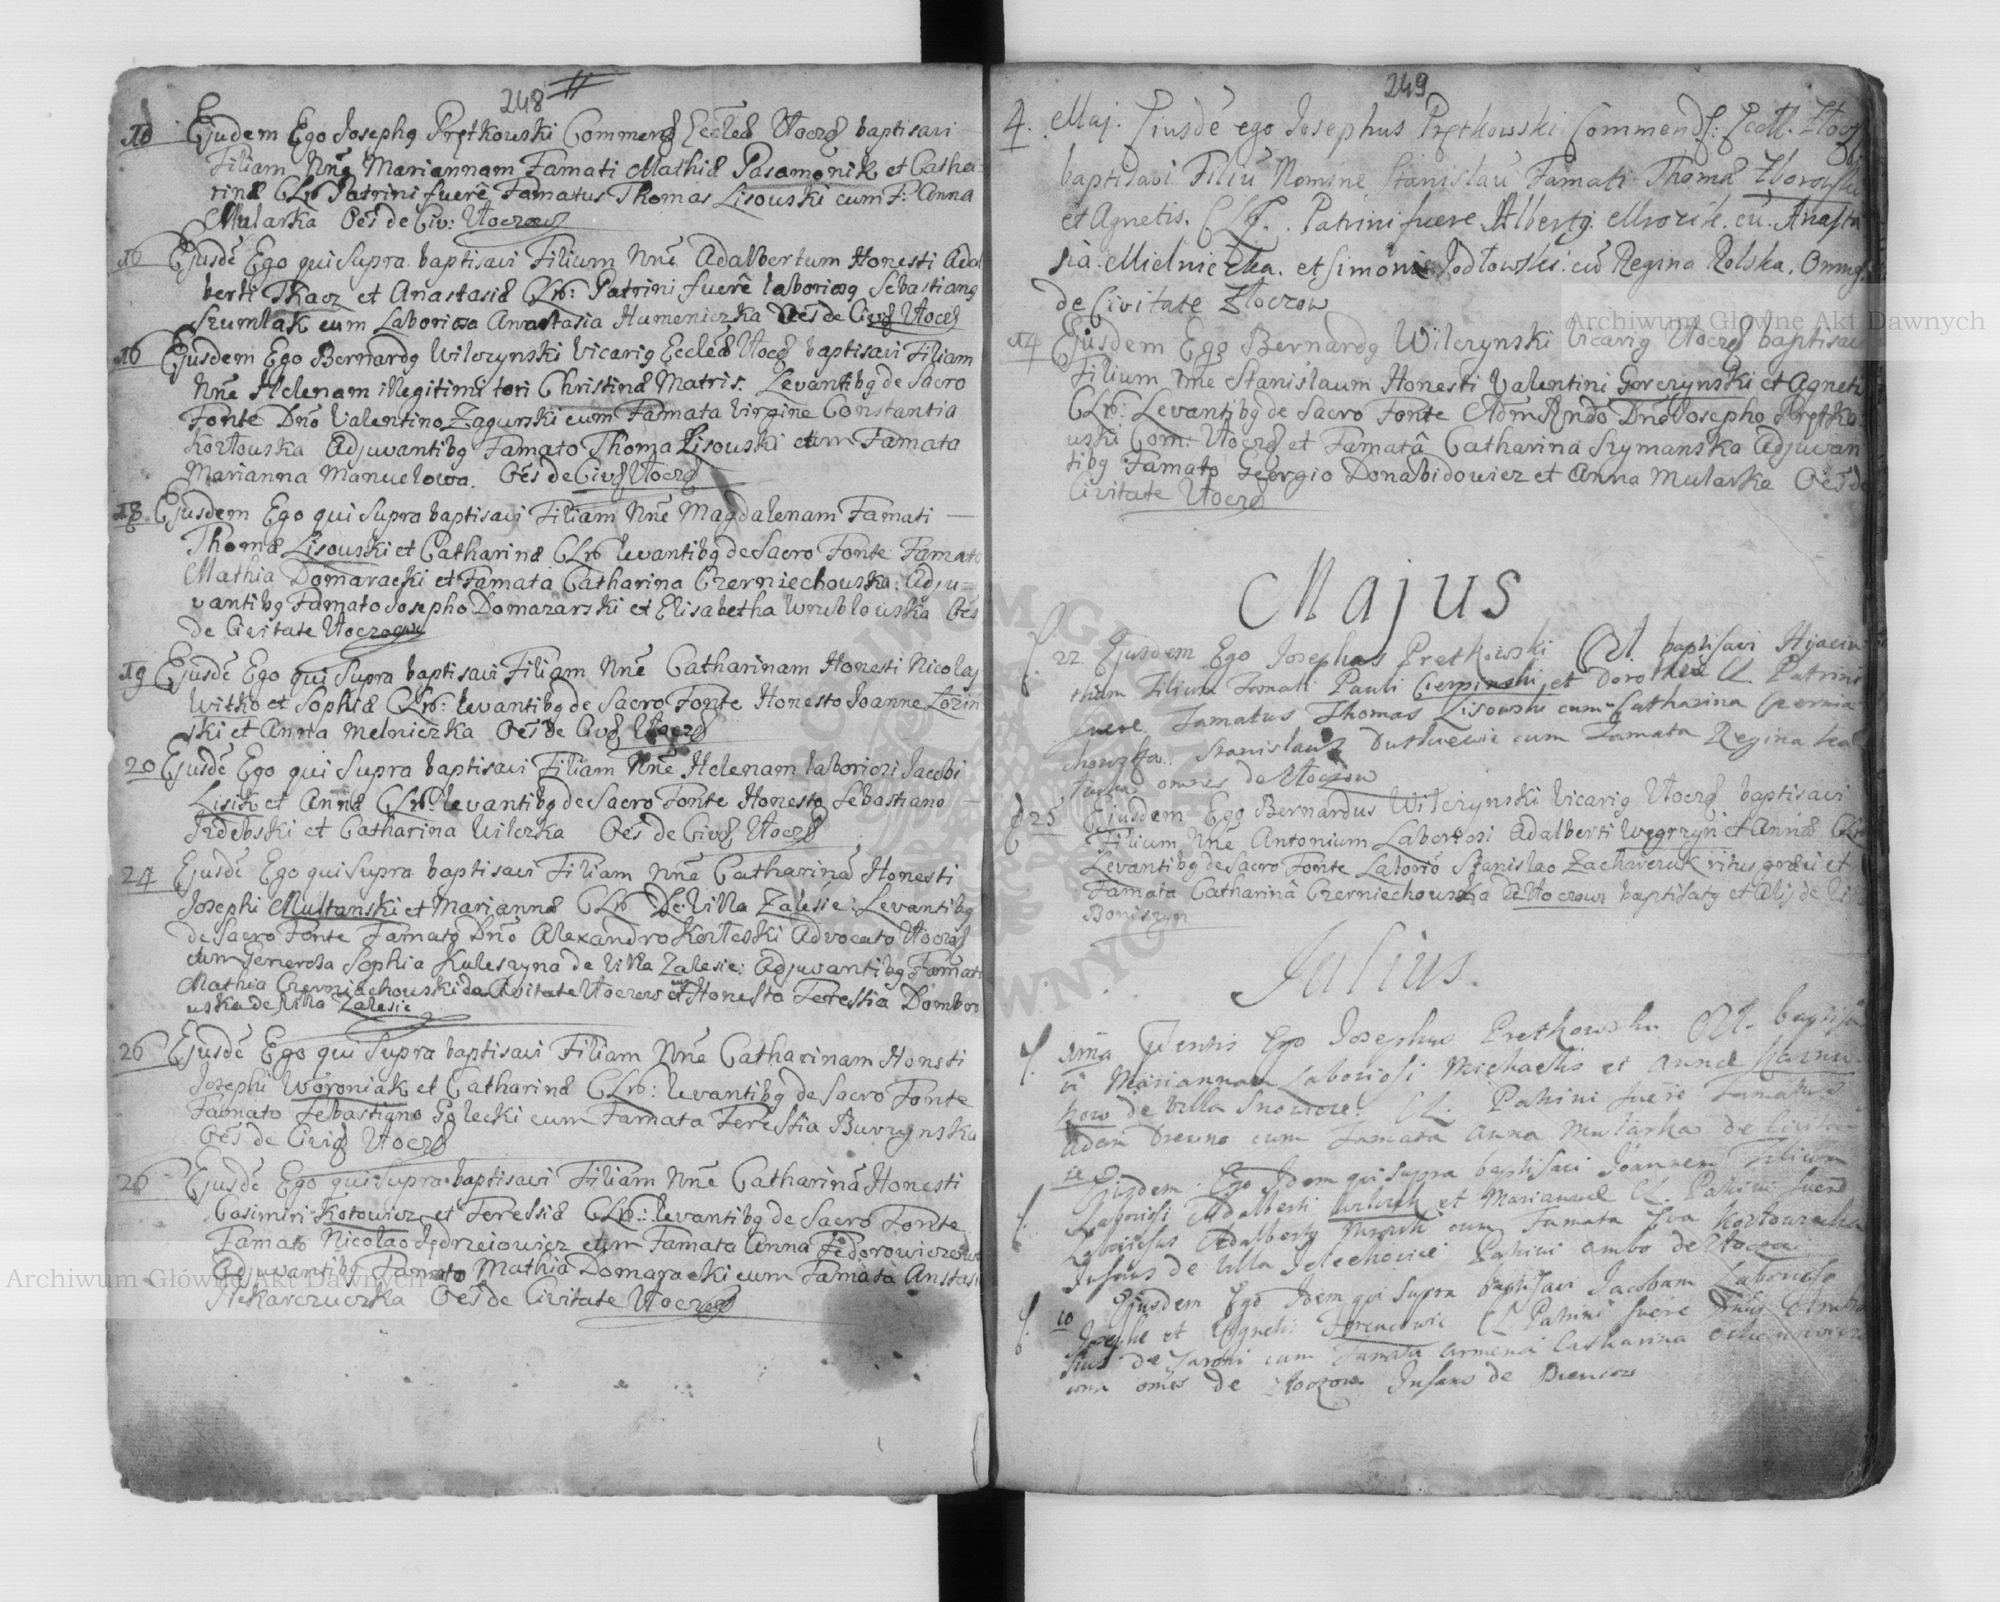 248
16 Ejudem Ego Josephg Prętkowski Commendg Eccleæ Złoczg baptisavi
Filiam Nne Mariannam Famati Mathiæ Pasamonik et Catha=
rinæ CLrō Patrini fuerê Famatus Thomas Lisouski cum F: Anna
Mularska Oēs de Civ: Złoczow
16 Ejusdē Ego qui Supra baptisavi Filium Nnē Adalbertum Honesti Adal
berti Tkacz et Anastasiæ CLrō: Patrini fuerê laboriosg Sebastiang
Szumlak cum Laboriosa Anastasia Humeniczka Oēs de Civg Złoczg
16 Ejusdem Ego Bernardg Wilczynski Vicarig Eccleæ Złoczg baptisavi Filiam
Nnē Helenam illegitimi tori Christinæ Matris. Levantibg de Sacro
Fonte Dnō Valentino Zagurski cum Famata Virgine Constantia
Kozłouska Adjuvantibg Famato Thoma Lisouski cum Famata
Marianna Manuelowa. Oēs de Civg Złoczg
18 Ejusdem Ego qui Supra baptisavi Filiam Nnē Magdalenam Famati
Thomæ Lisouski et Catharinæ CLrō levantibg de Sacro Fonte Famato
Mathia Domaracki et Famata Catharina Czerniechouska: Adju=
vantibg Famato Josepho Domazarski et Elisabetha Wrublouska Oēs
de Civitate Złoczow
19 Ejusdē Ego qui Supra baptisavi Filiam Nnē Catharinam Honesti Nicolaj
Witko et Sophiæ CLrō: levantibg de Sacro Fonte Honesto Joanne Lozin
ski et Anna Melniczka Oēs de Civg Złoczg
20 Ejusdē Ego qui Supra baptisavi Filiam Nnē Helenam laboriosi Jacobi
Lisik et Annæ CLrō levantibg de Sacro Fonte Honesto Sebastiano
Izdebski et Catharina Wilczka Oēs de Civg Złoczg
24 Ejusdē Ego qui Supra baptisavi Filiam Nnē Catharinā Honesti
Josephi Multanski et Mariannæ CLrō De Villa Zalesie: Levantibg
de Sacro Fonte Famatg Dnō Alexandro Kozłeski Advocato Złoczg
cum Generosa Sophia Kuleszyna de Villa Zalesie: Adjuvantibg Famat
Mathia Czerniachouski de Civitate Złoczow et Honesta Teressia Dombro
uska de Villa Zalesie
26 Ejusdē Ego qui Supra baptisavi Filiam Nnē Catharinam Honsti
Josephi Woroniak et Catharinæ CLrō: levantibg de Sacro Fonte
Famato Sebastiano Golecki cum Famata Teressia Burzynska
Oēs de Civig Złoczg
26 Ejusdē Ego qui Supra baptisavi Filiam Nnē Catharinā Honesti
Casimiri Kotowicz et Teressiæ CLrō: levantibg de Sacro Fonte
Famato Nicolao Jędrzeiowicz cum Famata Anna Fedorowiczowa
Adjuvantibg Famato Mathia Domaracki cum Famata Anstasi
Piekarczuczka Oēs de Civitate Złoczow
249
4. Maj. Eiusdē ego Josephus Prętkowski Commend: Eccl. Złocz
baptisavi Filiū Nomine Stanislaū Famati Thomæ Zborowski
et Agnetis. CLg. Patrini fuere Albertg Mrozik. cū. Anasta
sia. Mielniczka. et Simonis Jodłowski. cū Regina Rolska. Omnes
de Civitate Złoczow
14 Ejusdem Ego Bernardg Wilczynski Vicarig Złoczg baptisavi
Filium Nne Stanislaum Honesti Valentini Gorczynski et Agneti
CLrō: Levantibg de Sacro Fonte Adm Rndō Dnō Josepho Prętko
uski Com: Złoczg et Famatâ Catharina Szymanska Adjuvan
tibg Famato Georgio Donabidowicz et Anna Mularska Oēs de
Civitate Złoczg
Majus
22 Ejusdem Ego Josephus Pretkowski baptisavi Hijacin
thum Filium Famati Pauli Cierpinski et Dorotheæ CL Patrini
fuere Famatus Thomas Lisowski cum Catharina Czernia
chowska. Stanislaus cum Famata Regina
omnes de Złoczow
25 Ejusdem Ego Bernardus Wilczynski Vicarig Złoczg baptisavi
Filium Nnē Antonium Laboriosi Adalberti Węgrzyn et Annæ CLrō
Levantibg de Sacro Fonte Laborió Stanislao Zacharczuk ritus græci et
Famata Catharinâ Czerniechouska de Złoczow baptisatg et alij de Vi
Boniszyn
Julius.
Ima Ventis Ego Josephus Pretkowski baptisa
vi Mariannam Laboriosi Michaelis et Annæ
de Villa Snowicz. CL. Patrini fuere Famatus
Adam Drewno cum Famata Anna Mularska de Civita
te
Eiusdem Ego Idem qui supra baptisavi Joannem Filium
Laboriosi Adalberti et Mariannæ CL. Patrini fuere
Laboriosus Adalbertg Mrozik cum Famata Eva Kozłowska
Infans de Villa Jelechovice Patrini ambo de Złoczow
10 Ejusdem Ego Idem qui Supra baptisavi Jacobum Laboriosi
Josephi et Agnetis CL Patrini fuere
de cum Famata Armena Catharina
omēs de Złoczow Infans de
Archiwum Główne Akt Dawnych
Archiwum Główne Akt Dawnych
ARCHIWUM GŁÓWNE AKT DAWNYCH